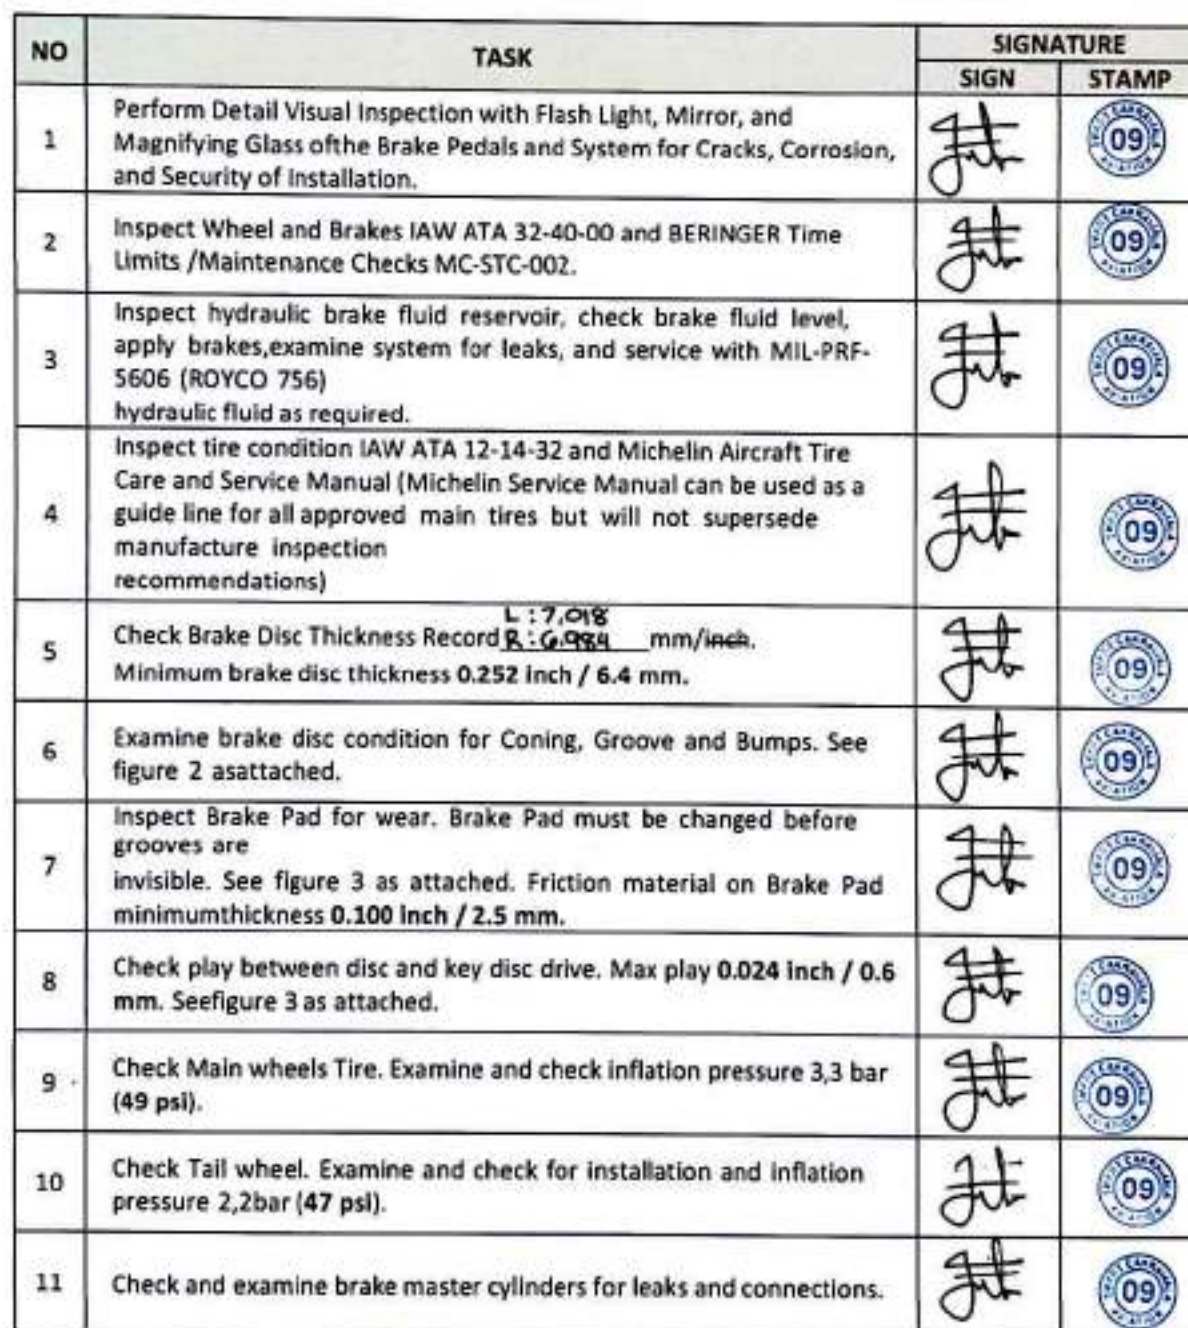 NO TASK SIGNATURE
SIGN STAMP
1 Perform Detail Visual Inspection with Flash Light, Mirror, and
Magnifying Glass ofthe Brake Pedals and System for Cracks, Corrosion,
and Security of Installation.
09
2 Inspect Wheel and Brakes IAW ATA 32-40-00 and BERINGER Time
Limits /Maintenance Checks MC-STC-002.
09
3 Inspect hydraulic brake fluid reservoir, check brake fluid level,
apply brakes,examine system for leaks, and service with MIL-PRF-
5606 (ROYCO 756)
hydraulic fluid as required.
09
4 Inspect tire condition IAW ATA 12-14-32 and Michelin Aircraft Tire
Care and Service Manual (Michelin Service Manual can be used as a
guide line for all approved main tires but will not supersede
manufacture inspection
recommendations)
09
L : 7,018
5 Check Brake Disc Thickness Record R : 6.984 mm/inch.
Minimum brake disc thickness 0.252 inch / 6.4 mm.
09
6 Examine brake disc condition for Coning, Groove and Bumps. See
figure 2 asattached.
09
7 Inspect Brake Pad for wear. Brake Pad must be changed before
grooves are
invisible. See figure 3 as attached. Friction material on Brake Pad
minimumthickness 0.100 inch / 2.5 mm.
09
8 Check play between disc and key disc drive. Max play 0.024 inch / 0.6
mm. Seefigure 3 as attached.
09
9 Check Main wheels Tire. Examine and check inflation pressure 3,3 bar
(49 psi).
09
10 Check Tail wheel. Examine and check for installation and inflation
pressure 2,2bar (47 psi).
09
11 Check and examine brake master cylinders for leaks and connections.
09